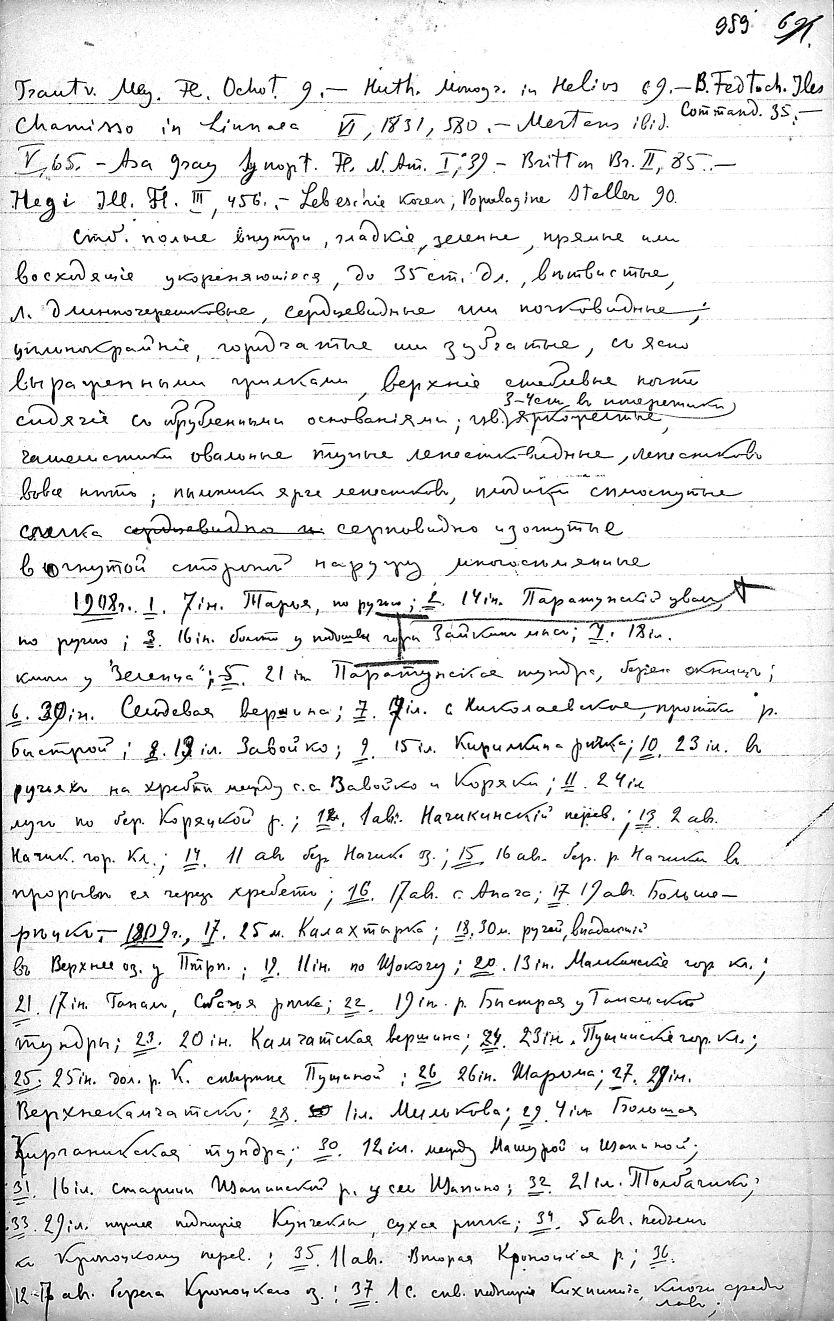 959
Trautv. Mey. Fl. Ochot. 9.— Huth. Monogr. in Helios 69.— B. Fedtsch. Iles Command. 35.—
Chamisso in Linnaea VI, 1831, 580.— Mertens ibid.
V, 65.— Asa Gray Synopt. Fl. N. Am. I, 39.— Britton Br. II, 85.—
Hegi Ill. Fl. III, 456.— Steller 90.
Стб. полые внутри, гладкіе, зеленые, прямые или
восходящіе укореняющіеся, до 35 cm. дл., вѣтвистые,
л. длинночерешковые, сердцевидные или почковидные,
цѣльнокрайніе, городчатые или зубчатые, съ ясно
выраженными жилками, верхніе стеблевые почти
сидячіе съ обрубленными основаніями; цв. 3-4cm въ поперечнике, яркожелтые,
чашелистики овальные тупые лепестковидные, лепестковъ
вовсе нѣтъ; пыльники ярче лепестковъ, плодики сплюснутые
слегка сердцевидно и серповидно изогнутые
вогнутой стороной наружу, многосѣмянные
1908 г. 1. 7 іюн. Тарья, по ручью; 2. 14 іюн. Паратунскій увал,
по ручью; 3. 16 іюн. болото у подошвы горы Зайкин мыс; 4. 18 іюн.
ключи у "Зеленца"; 5. 21 іюн. Паратунская тундра, берега окнищъ;
6. 30 іюн. Сельдевая вершина; 7. іюл. с. Николаевское, протоки р.
Быстрой; 8. 13 іюл. Завойко; 9. 15 іюл. Кирилкина рѣчка; 10. 23 іюл. въ
ручьяхъ на хребтѣ между с.с. Завойко и Коряки; 11. 24 іюл.
лугъ по бер. Коряцкой р.; 12. 1 авг. Начикинскій перев.; 13. 2 авг.
Начик. гор. кл.; 14. 11 авг. бер. Начик. оз.; 15. 16 авг. бер. р. Начики въ
прорывѣ ея черезъ хребетъ; 16. 17 авг. с. Апача; 17. 19 авг. Больше-
рѣцкъ.— 1909 г., 17. 25 м. Калахтырка; 18. 30 м. ручей, впадающій
въ Верхнее оз. у Птрп.; 19. 11 іюн. по Шокочу; 20. 13 іюн. Малкинскіе гор. кл.;
21. 17 іюн. Ганалы, рѣчка; 22. 19 іюн. р. Быстрая у Ганальской
тундры; 23. 20 іюн. Камчатская вершина; 24. 23 іюн. Пущинскіе гор. кл.;
25. 25 іюн. дол. р. К. сѣвернѣе Пущиной; 26. 26 іюн. Шарома; 27. 29 іюн.
Верхнекамчатскъ; 28. 1 іюл. Милькова; 29. 4 іюл. Большая
Кирганикская тундра; 30. 12 іюл. между Машурой и Щапиной;
31. 16 іюл. старица Щапинской р. у сел. Щапино; 32. 21 іюл. Толбачикъ;
33. 29 іюл. подножіе Кунчеклы, сухая рѣчка; 34. 5 авг. подъемъ
къ Кроноцкому перев.; 35. 11 авг. Вторая Кроноцкая р.; 36.
12-17 авг. берега Кроноцкаго оз.; 37. 1 с. сѣв. подножіе Кихпиныча, ключи среди
лавъ;